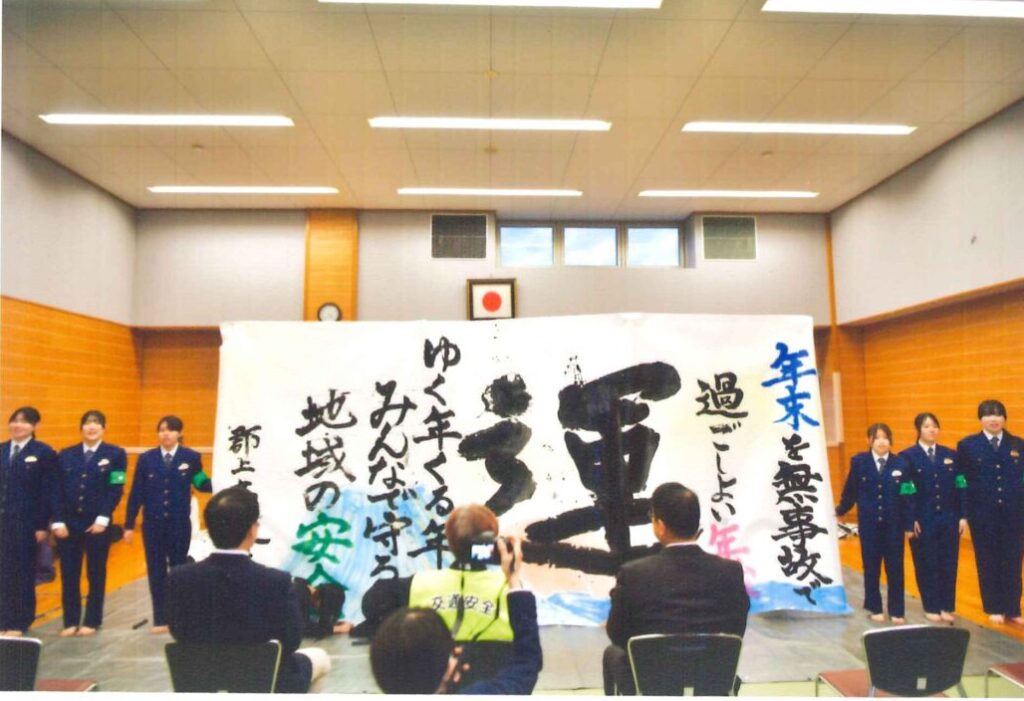 年末を無事故で
過ごしよい年
運
ゆく年くる年
みんなで守ろ
地域の安全
郡上
交通安全